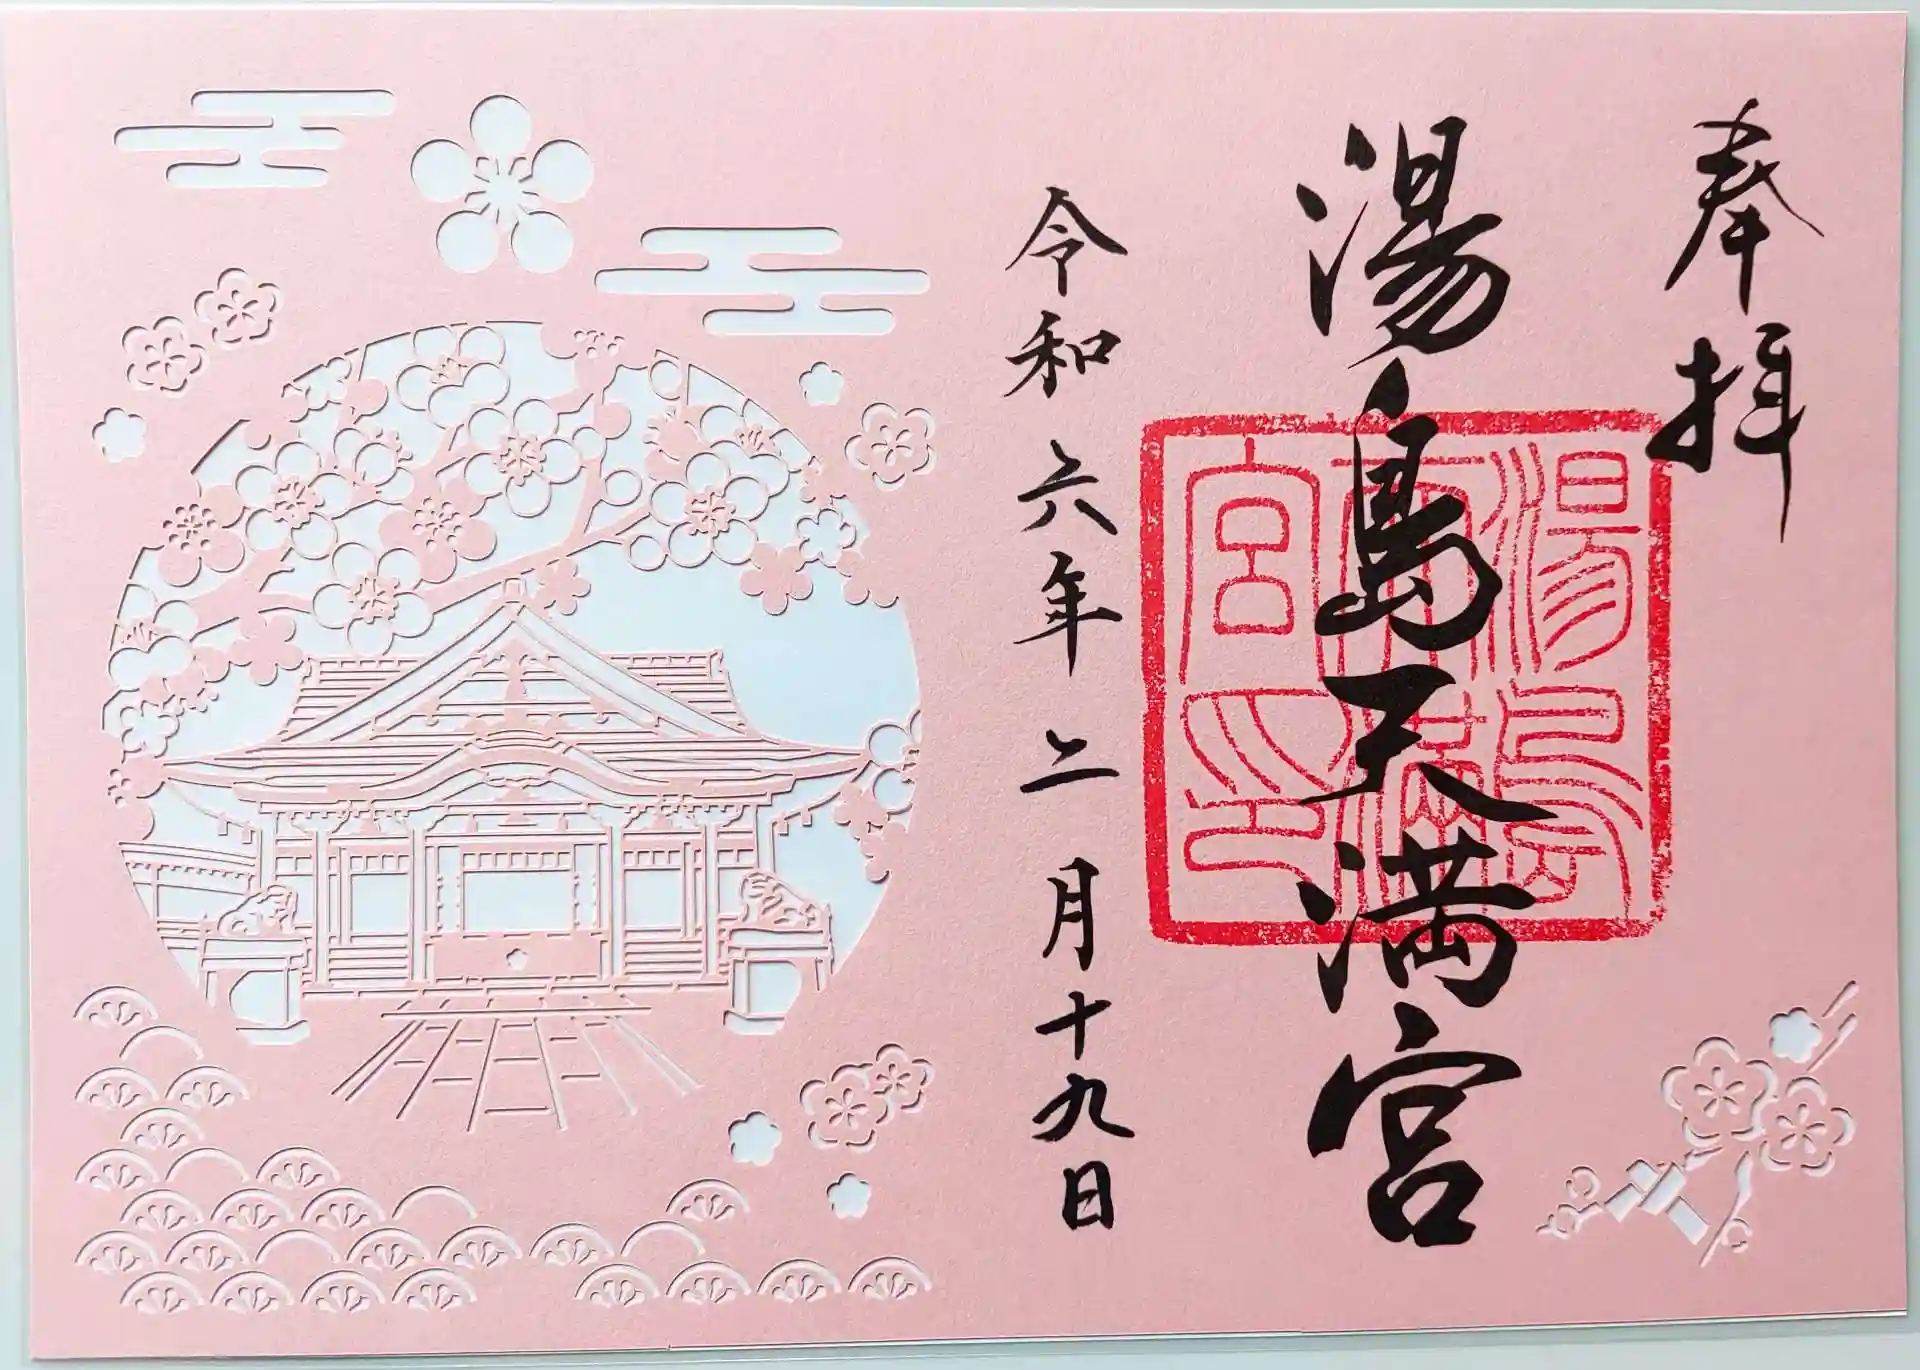 奉拝
湯島天満宮
湯島天満宮印
令和六年二月十九日